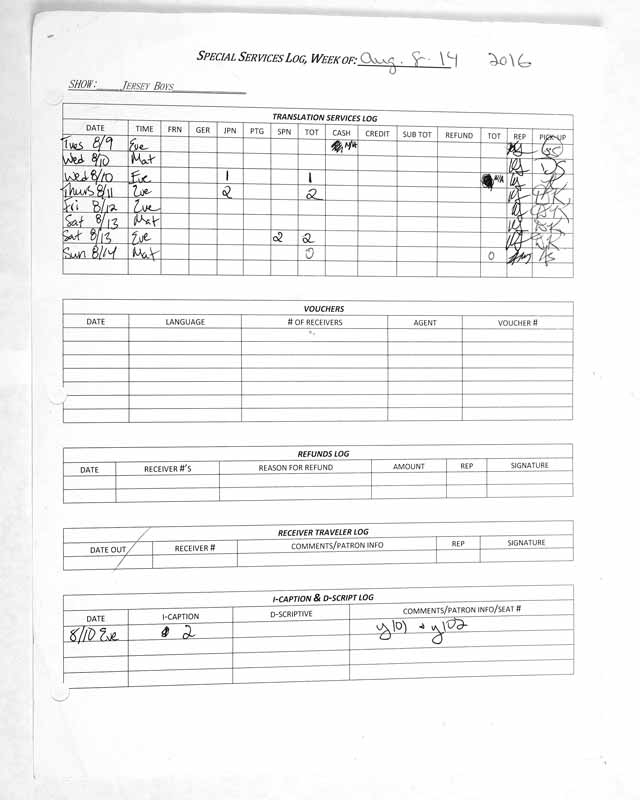 SPECIAL SERVICES LOG, WEEK OF: Aug. 8-14 2016
SHOW: JERSEY BOYS
TRANSLATION SERVICES LOG
DATE TIME FRN GER JPN PTG SPN TOT CASH CREDIT SUB TOT REFUND TOT REP PICK-UP
Tues 8/9 Eve N/A
Wed 8/10 Mat DS
Wed 8/10 Eve 1 1 N/A
Thurs 8/11 Eve 2 2
Fri 8/12 Eve
Sat 8/13 Mat
Sat 8/13 Eve 2 2
Sun 8/14 Mat 0 0
VOUCHERS
DATE LANGUAGE # OF RECEIVERS AGENT VOUCHER #
REFUNDS LOG
DATE RECEIVER #'S REASON FOR REFUND AMOUNT REP SIGNATURE
RECEIVER TRAVELER LOG
DATE OUT RECEIVER # COMMENTS/PATRON INFO REP SIGNATURE
I-CAPTION & D-SCRIPT LOG
DATE I-CAPTION D-SCRIPTIVE COMMENTS/PATRON INFO/SEAT #
8/10 Eve 2 y101 + y102